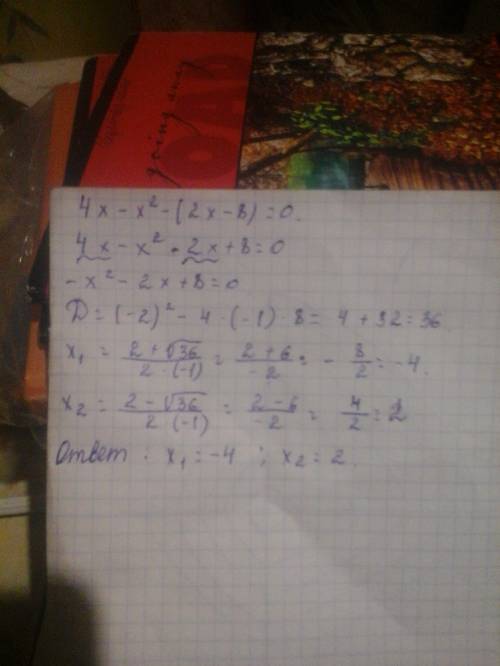 going away
ROAD
4x - x² - (2x - 8) = 0.
4x - x² - 2x + 8 = 0
-x² - 2x + 8 = 0
D = (-2)² - 4 · (-1) · 8 = 4 + 32 = 36
x₁ = (2 + √36)/(2 · (-1)) = (2 + 6)/(-2) = - 8/2 = -4.
x₂ = (2 - √36)/(2 · (-1)) = (2 - 6)/(-2) = 4/2 = 2
Ответ : x₁ = -4 ; x₂ = 2.